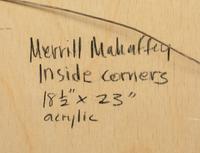 Merrill Mahaffey
Inside corners
18½" x 23"
acrylic